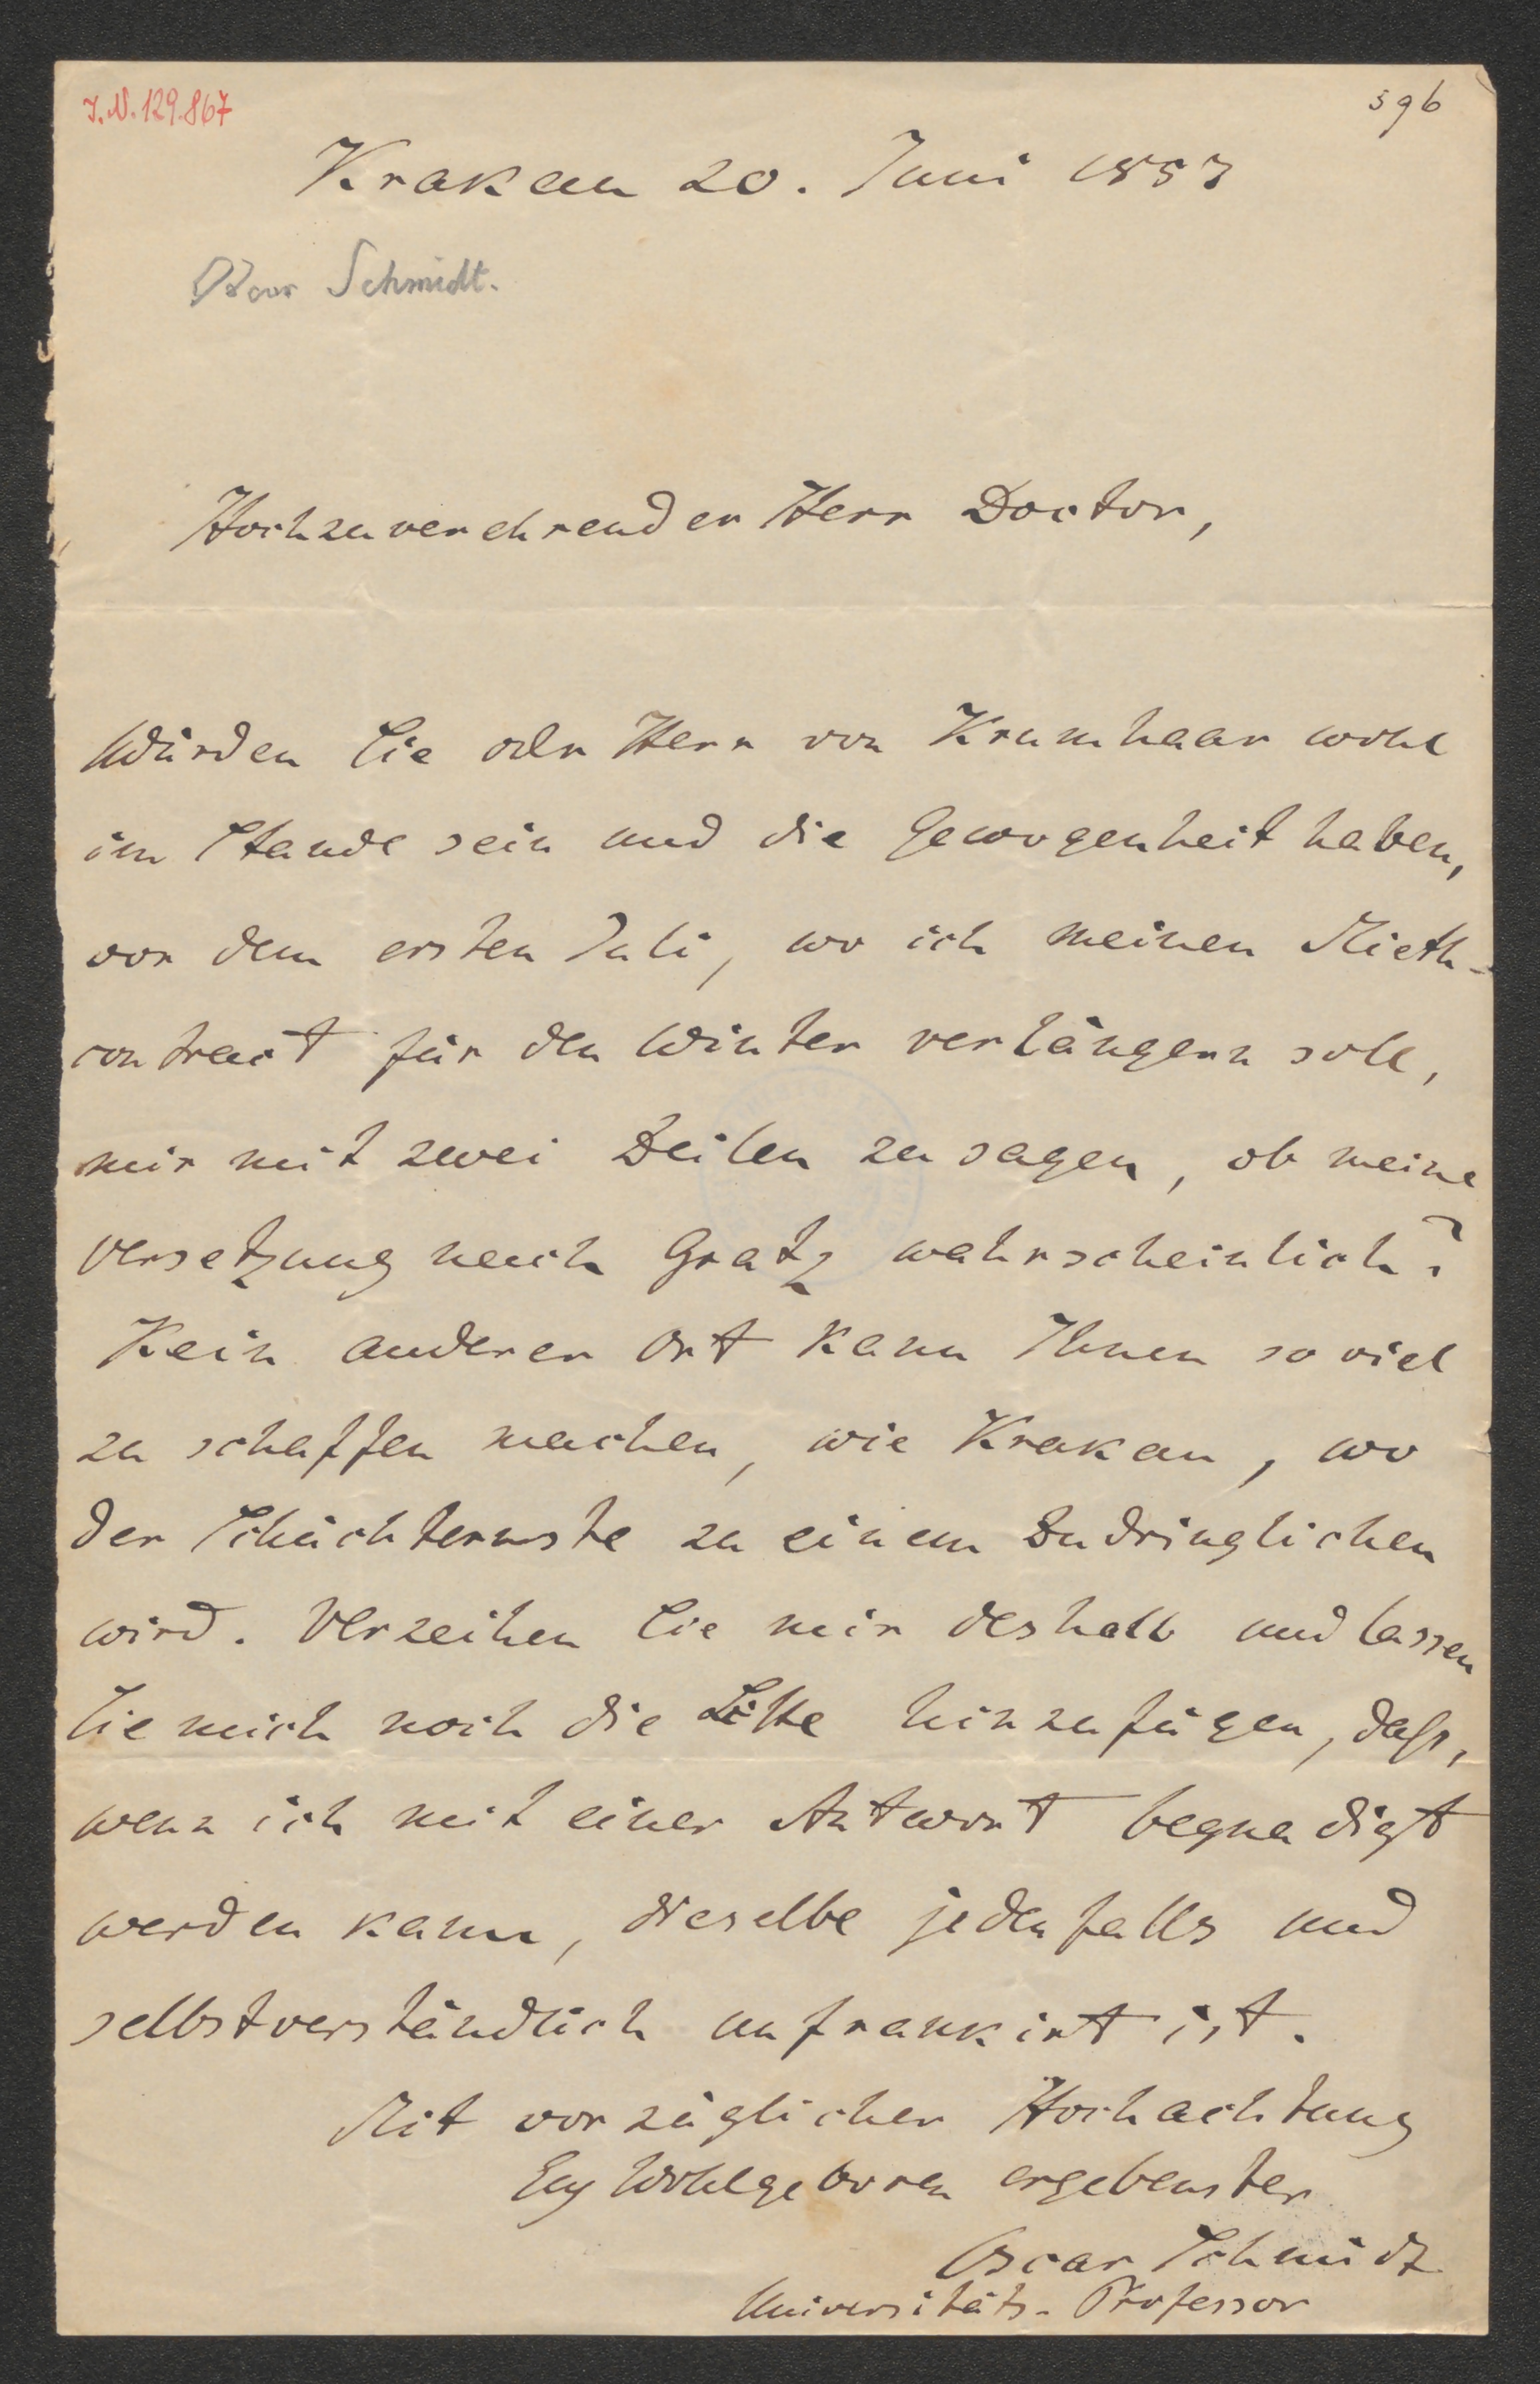 J.N. 129.867
596
Krakau 20. Juni 1857
Oscar Schmidt.
Hochzuverehrender Herr Doctor,
Würden Sie oder Herr von Krumhaar wohl
im Stande sein und die Gewogenheit haben,
vor dem ersten Juli, wo ich meinen Mieth-
contract für den Winter verlängern soll,
mir mit zwei Zeilen zu sagen, ob meine
Versetzung nach Gratz wahrscheinlich?
Kein anderer Ort kann Ihnen so viel
zu schaffen machen, wie Krakau, wo
der Schüchternste zu einem Zudringlichen
wird. Verzeihen Sie mir deshalb und lassen
Sie mich noch die Bitte hinzufügen, daß,
wenn ich mit einer Antwort begnadigt
werden kann, dieselbe jedenfalls und
selbstverständlich unfrankirt ist.
Mit vorzüglicher Hochachtung
Ew Wohlgeboren ergebenster
Oscar Schmidt
Universitäts-Professor